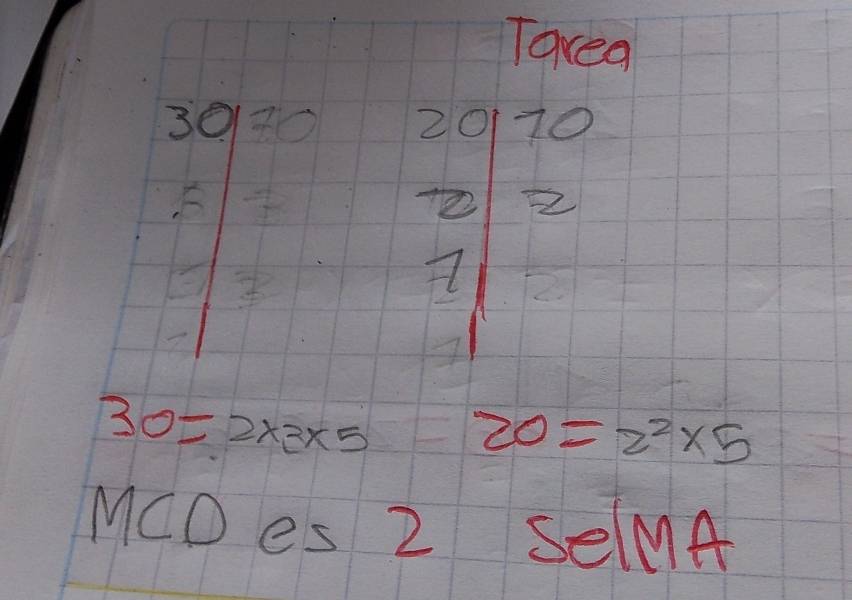 Tarea
30 | 10 20 | 10
2 2
1
30 = 2x3x5 20 = 2²x5
MCD es 2 SelMA